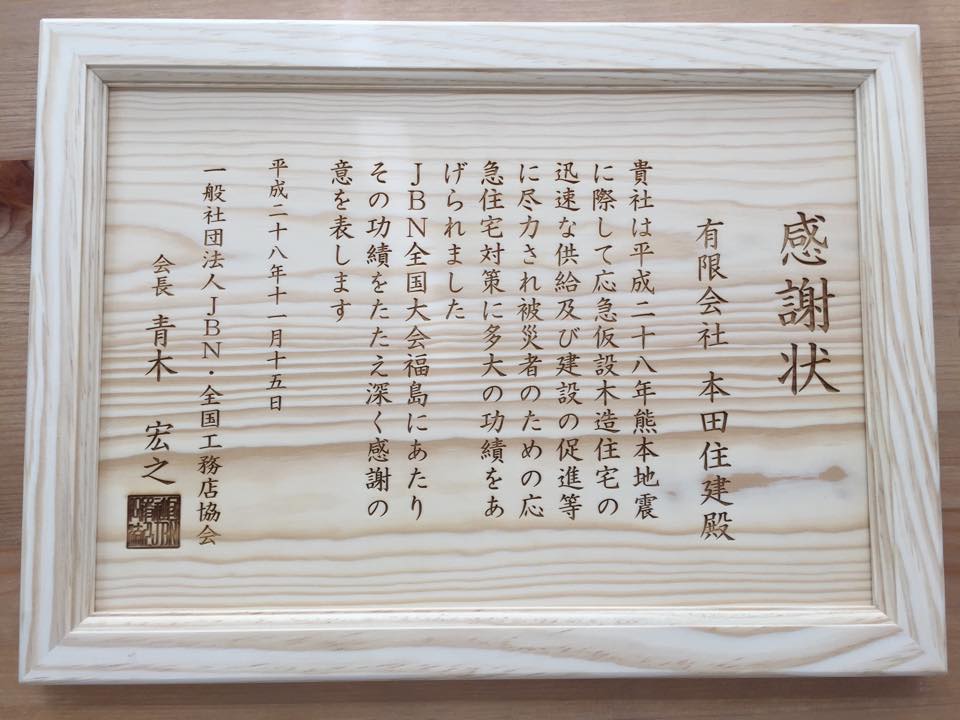 感謝状
有限会社 本田住建殿
貴社は平成二十八年熊本地震
に際して応急仮設木造住宅の
迅速な供給及び建設の促進等
に尽力され被災者のための応
急住宅対策に多大の功績をあ
げられました
JBN全国大会福島にあたり
その功績をたたえ深く感謝の
意を表します
平成二十八年十一月十五日
一般社団法人JBN・全国工務店協会
会長 青木 宏之